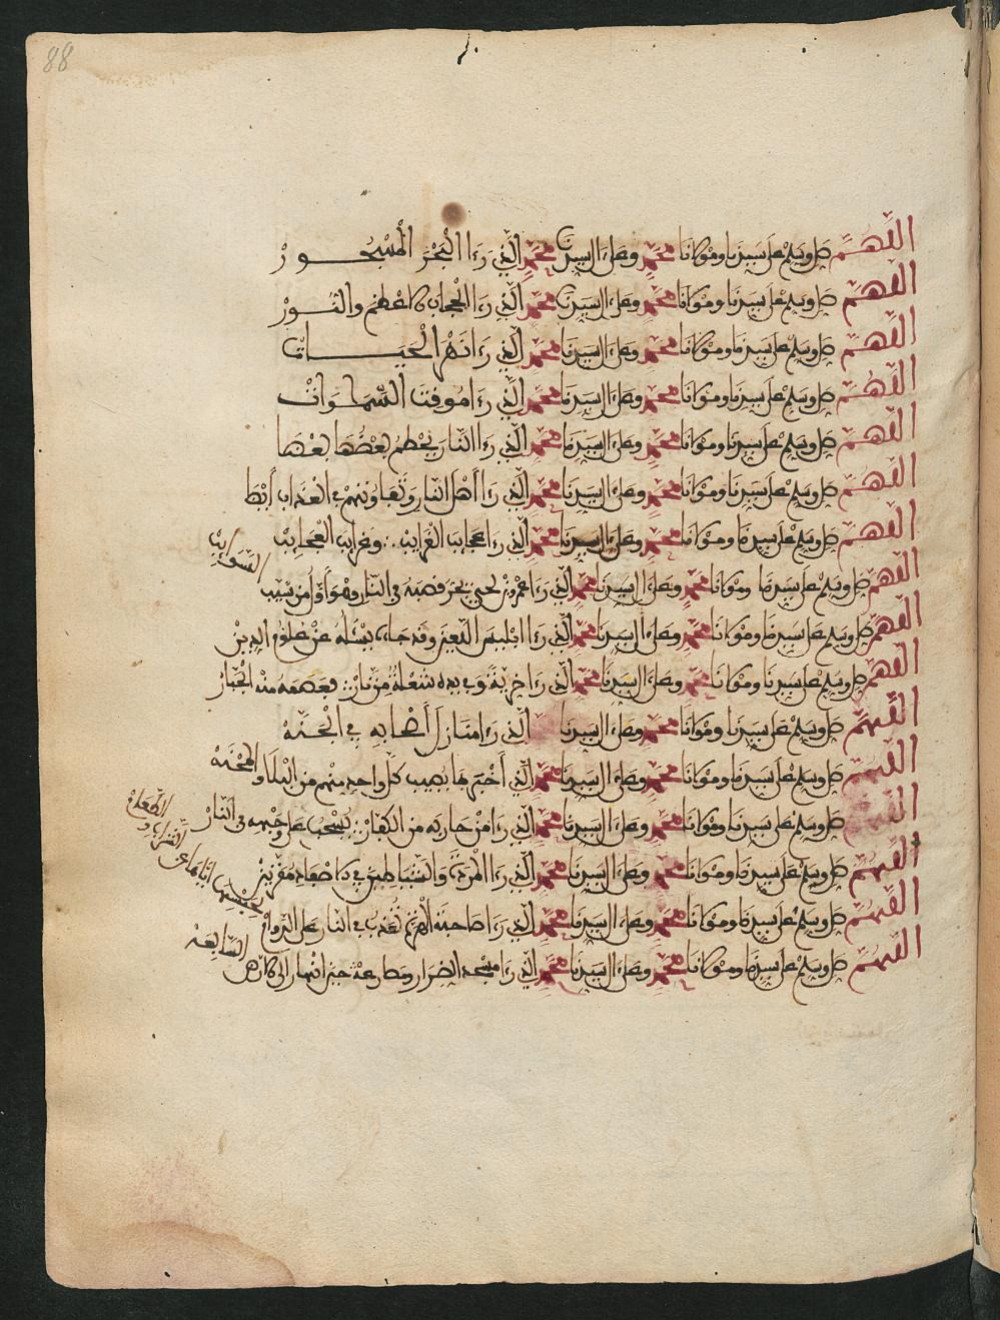 88
اللهم صل وسلم على سيدنا ومولانا محمد وعلى ءال سيدنا محمد الذي رءا البحر المسجور
اللهم صل وسلم على سيدنا ومولانا محمد وعلى ءال سيدنا محمد الذي رءا الحجاب الاعظم والنور
اللهم صل وسلم على سيدنا ومولانا محمد وعلى ءال سيدنا محمد الذي رءا نهر الحيات
اللهم صل وسلم على سيدنا ومولانا محمد وعلى ءال سيدنا محمد الذي رءا السموات
اللهم صل وسلم على سيدنا ومولانا محمد وعلى ءال سيدنا محمد الذي رءا النار يحطم بعضها بعضا
اللهم صل وسلم على سيدنا ومولانا محمد وعلى ءال سيدنا محمد الذي رءا أهل النار وتفاوتهم في العذاب أيضا
اللهم صل وسلم على سيدنا ومولانا محمد وعلى ءال سيدنا محمد الذي رءا عجائب الغرايب وغرايب العجايب
اللهم صل وسلم على سيدنا ومولانا محمد وعلى ءال سيدنا محمد الذي رءا عمرو بن لحي يجر قصبه في النار وهو أول من سيب السوايب
اللهم صل وسلم على سيدنا ومولانا محمد وعلى ءال سيدنا محمد الذي رءا ابليس اللعين وقد جاء يفتله عن الدين
اللهم صل وسلم على سيدنا ومولانا محمد وعلى ءال سيدنا محمد الذي رءا في يده شعلة من نار فعصمه منه الجبار
اللهم صل وسلم على سيدنا ومولانا محمد وعلى ءال سيدنا الذي رءا منازل أصحابه في الجنة
اللهم صل وسلم على سيدنا ومولانا محمد وعلى ءال سيدنا محمد الذي أخبر بما يصيب كل واحد منهم من البلاء والمحنة
صل وسلم على سيدنا ومولانا محمد وعلى ءال سيدنا محمد الذي رءا من حاربه من الكفار يسحب على وجهه في النار
اللهم صل وسلم على سيدنا ومولانا محمد وعلى ءال سيدنا محمد الذي رءا المردة والشياطين في الاصفاد مقرنين
اللهم صل وسلم على سيدنا ومولانا محمد وعلى ءال سيدنا محمد الذي رءا صاحبة الهرة تعذب في النار على الدوام
اللهم صل وسلم على سيدنا ومولانا محمد وعلى ءال سيدنا محمد الذي رءا مسجد الضرار حين انهار الى السابعة